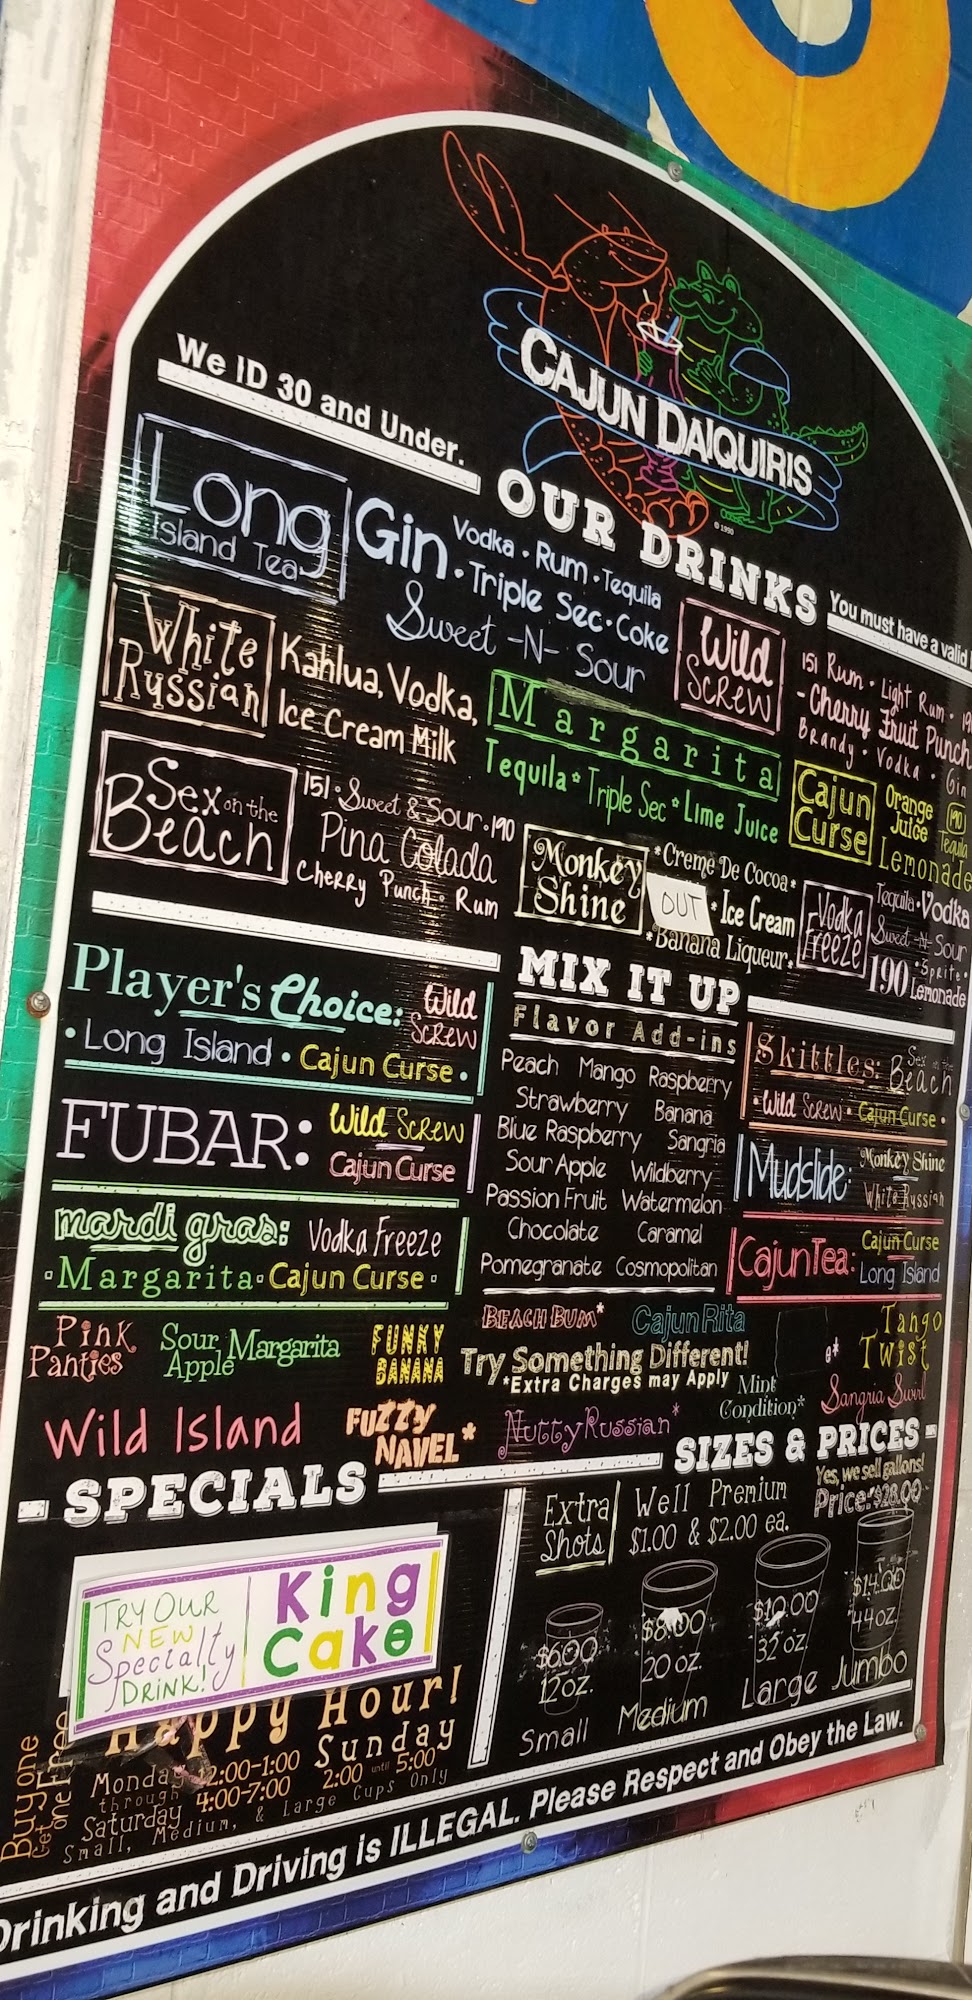 CAJUN DAIQUIRIS
© 1990
We ID 30 and Under.
OUR DRINKS
You must have a valid
Long
Island Tea
Gin
Vodka • Rum • Tequila
• Triple Sec • Coke
Sweet -N- Sour
Wild
Screw
151 Rum • Light Rum •
- Cherry Fruit Punch
Brandy • Vodka • Gin
White
Russian
Kahlua, Vodka,
Ice Cream Milk
Margarita
Tequila • Triple Sec • Lime Juice
Cajun
Curse
Orange
Juice
190
Tequila
Lemonade
Sex on the
Beach
151 • Sweet & Sour • 190
Pina Colada
Cherry Punch • Rum
Monkey
Shine
OUT
*Creme De Cocoa*
* Ice Cream
*Banana Liqueur
Vodka
Freeze
Tequila • Vodka
Sweet -N- Sour
• Sprite •
190 Lemonade
Player's Choice: Wild Screw
• Long Island • Cajun Curse •
FUBAR: Wild Screw
Cajun Curse
mardi gras: Vodka Freeze
• Margarita • Cajun Curse •
MIX IT UP
Flavor Add-ins
Peach Mango Raspberry
Strawberry Banana
Blue Raspberry Sangria
Sour Apple Wildberry
Passion Fruit Watermelon
Chocolate Caramel
Pomegranate Cosmopolitan
Skittles: Sex on the Beach
• Wild Screw • Cajun Curse •
Mudslide: Monkey Shine
White Russian
Cajun Tea: Cajun Curse
Long Island
Pink
Panties
Sour
Apple Margarita
FUNKY
BANANA
BEACH BUM*
Cajun Rita
Tango
Twist
Try Something Different!
*Extra Charges may Apply
Wild Island
FUZZY
NAVEL*
Nutty Russian*
Mint
Condition*
Sangria Swirl
- SPECIALS
SIZES & PRICES -
TRY OUR
NEW
Specialty
DRINK!
King
Cake
Happy Hour!
Buy one
Get one Free
Monday 12:00-1:00
through
Saturday 4:00-7:00
Sunday
2:00 until 5:00
Small, Medium, & Large Cups Only
Extra
Shots
Well Premium
$1.00 & $2.00 ea.
Yes, we sell gallons!
Price: $28.00
$6.00
12 oz.
Small
$8.00
20 oz.
Medium
$10.00
32 oz.
Large
$14.00
44 oz.
Jumbo
Drinking and Driving is ILLEGAL. Please Respect and Obey the Law.